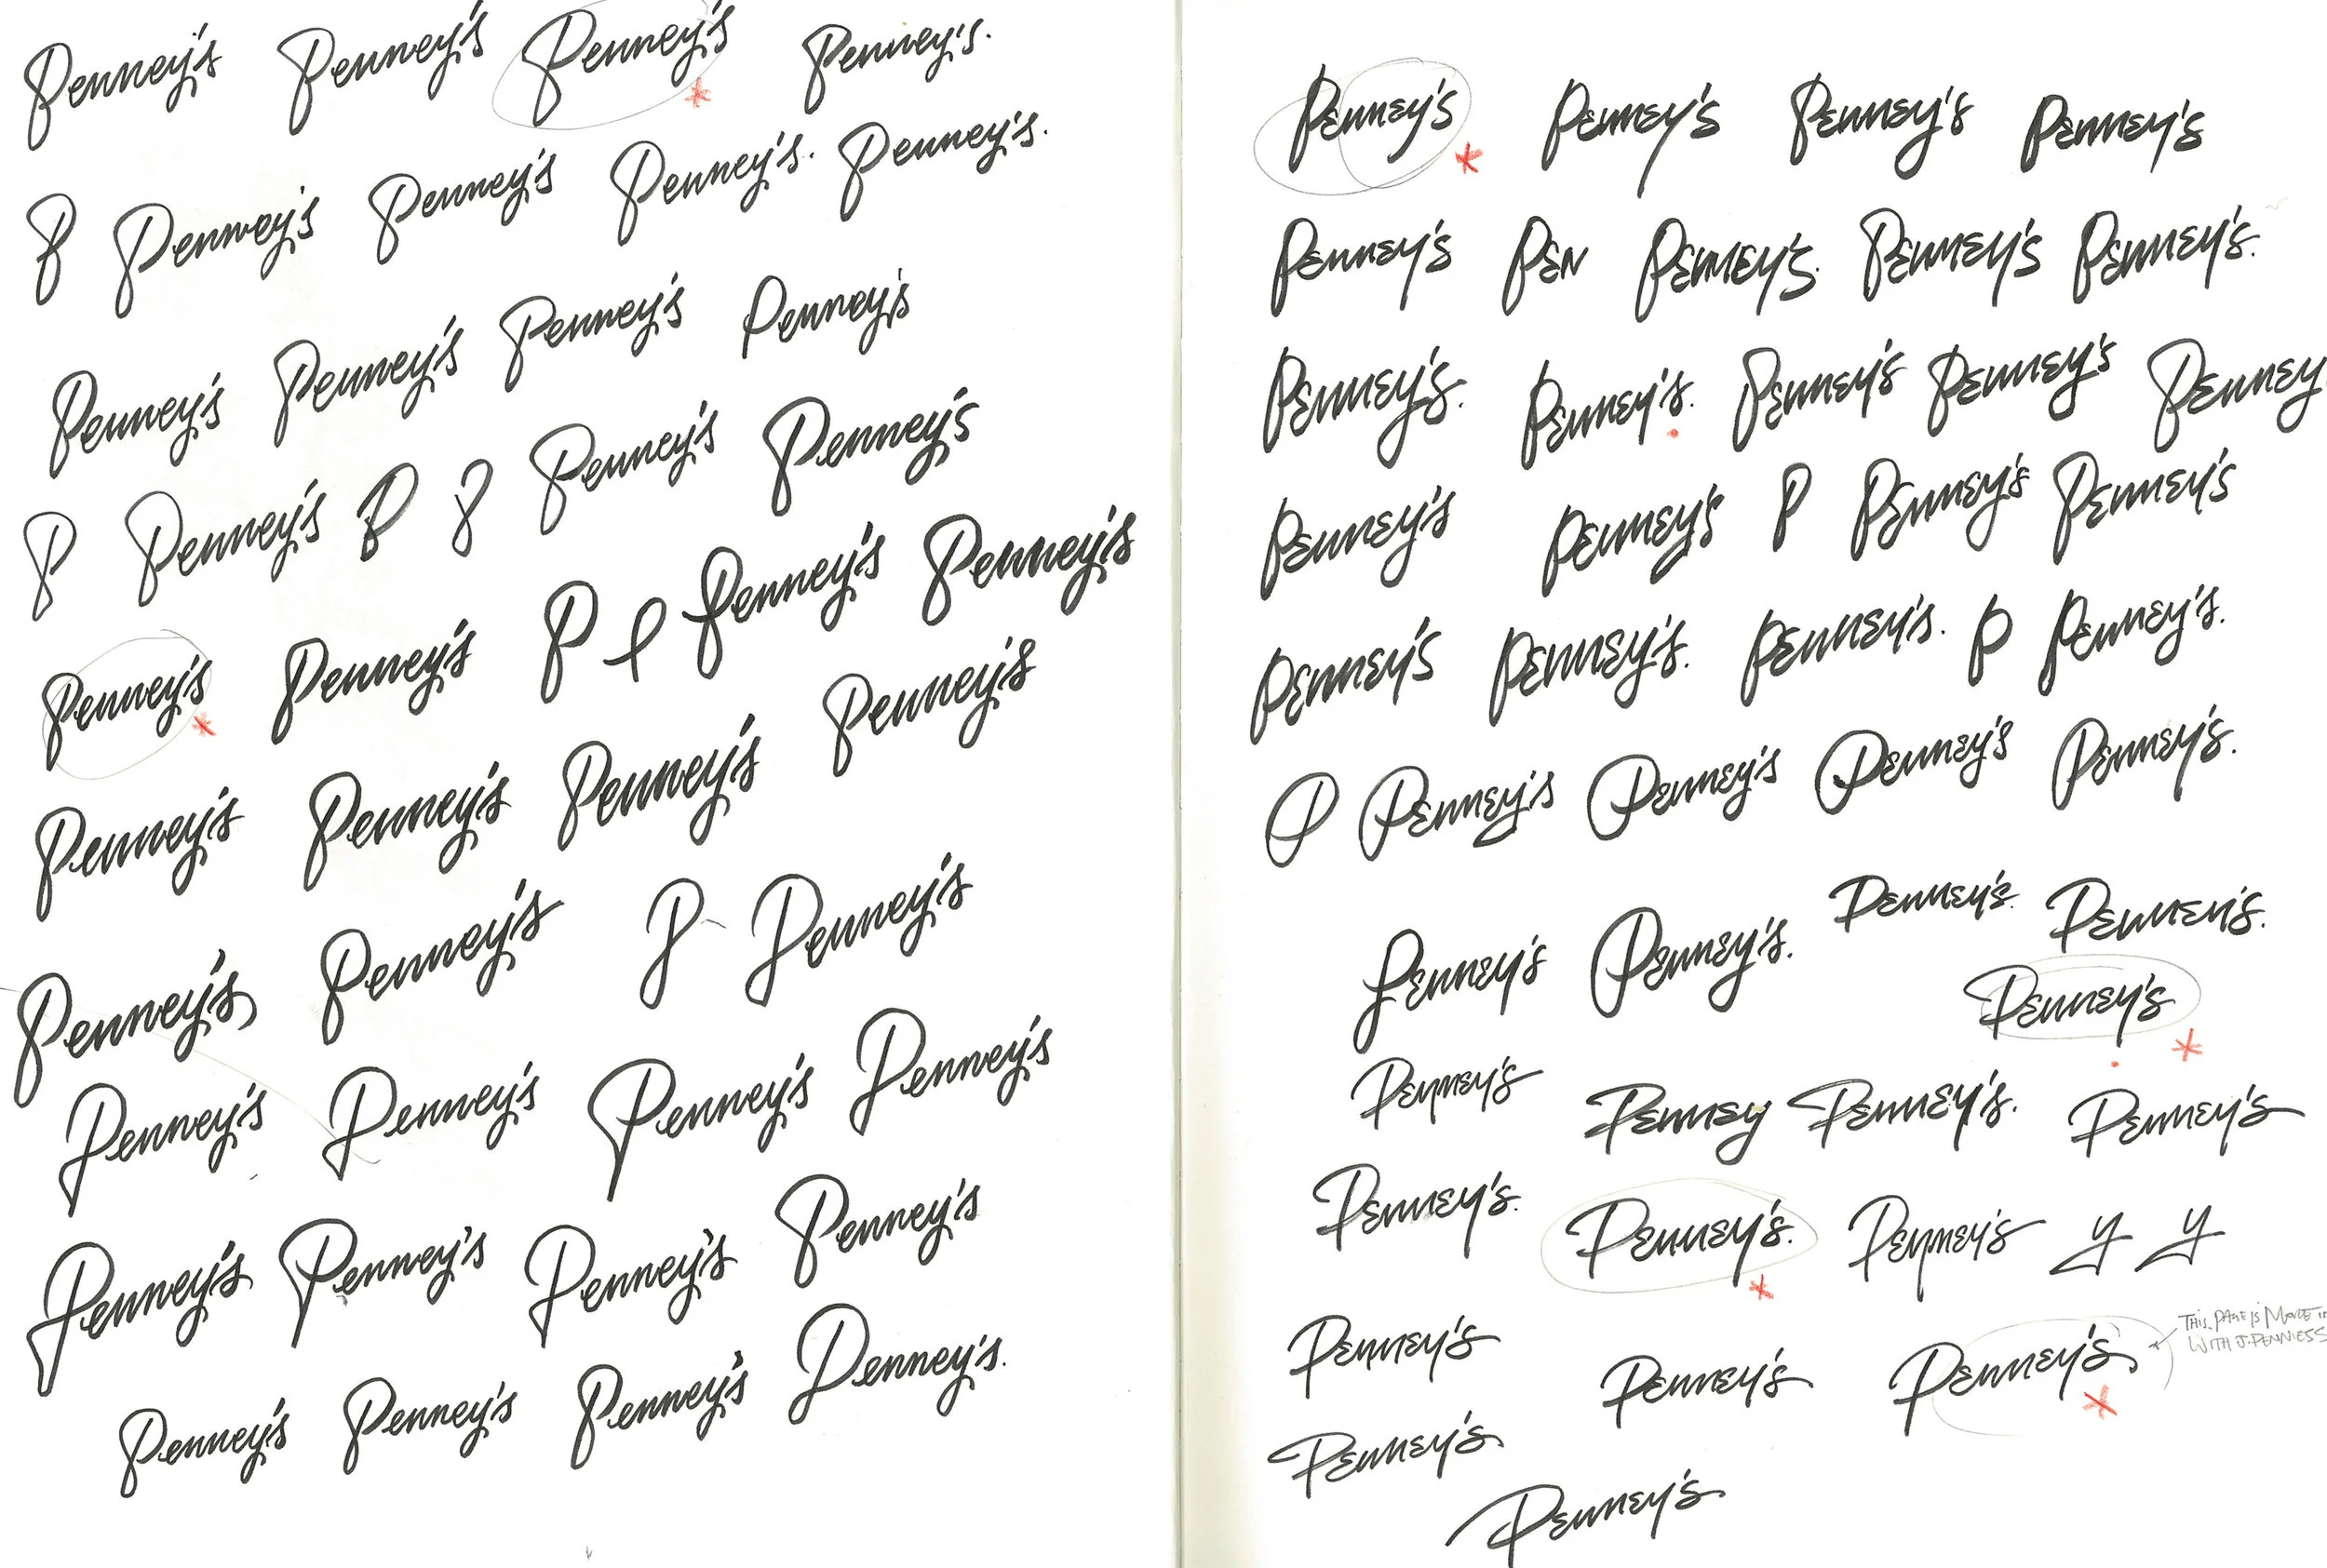 Penney's Penney's Penney's Penney's.
P Penney's Penney's Penney's. Penney's.
Penney's Penney's Penney's Penney's
P Penney's P P Penney's Penney's
Penney's Penney's P l Penney's Penney's
Penney's Penney's Penney's Penney's
Penney's Penney's P Penney's
Penney's Penney's Penney's Penney's
Penney's Penney's Penney's Penney's
Penney's Penney's Penney's Penney's.
Penney's Penney's Penney's Penney's
Penney's Pen Penney's. Penney's Penney's.
Penney's. Penney's. Penney's Penney's Penney
Penney's Penney's P Penney's Penney's
Penney's Penney's. Penney's. P Penney's.
P Penney's Penney's Penney's Penney's.
Penney's Penney's. Penney's. Penney's.
Penney's
Penney's Penney Penney's. Penney's
Penney's. Penney's. Penney's y y
Penney's Penney's Penney's
THIS PAGE IS MORE
WITH J. PENNIESS
Penney's
Penney's